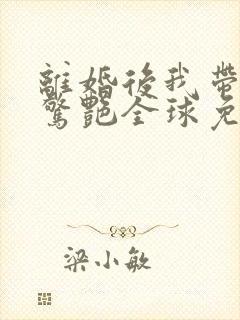 離婚後我帶
驚艷全球免
梁小敏